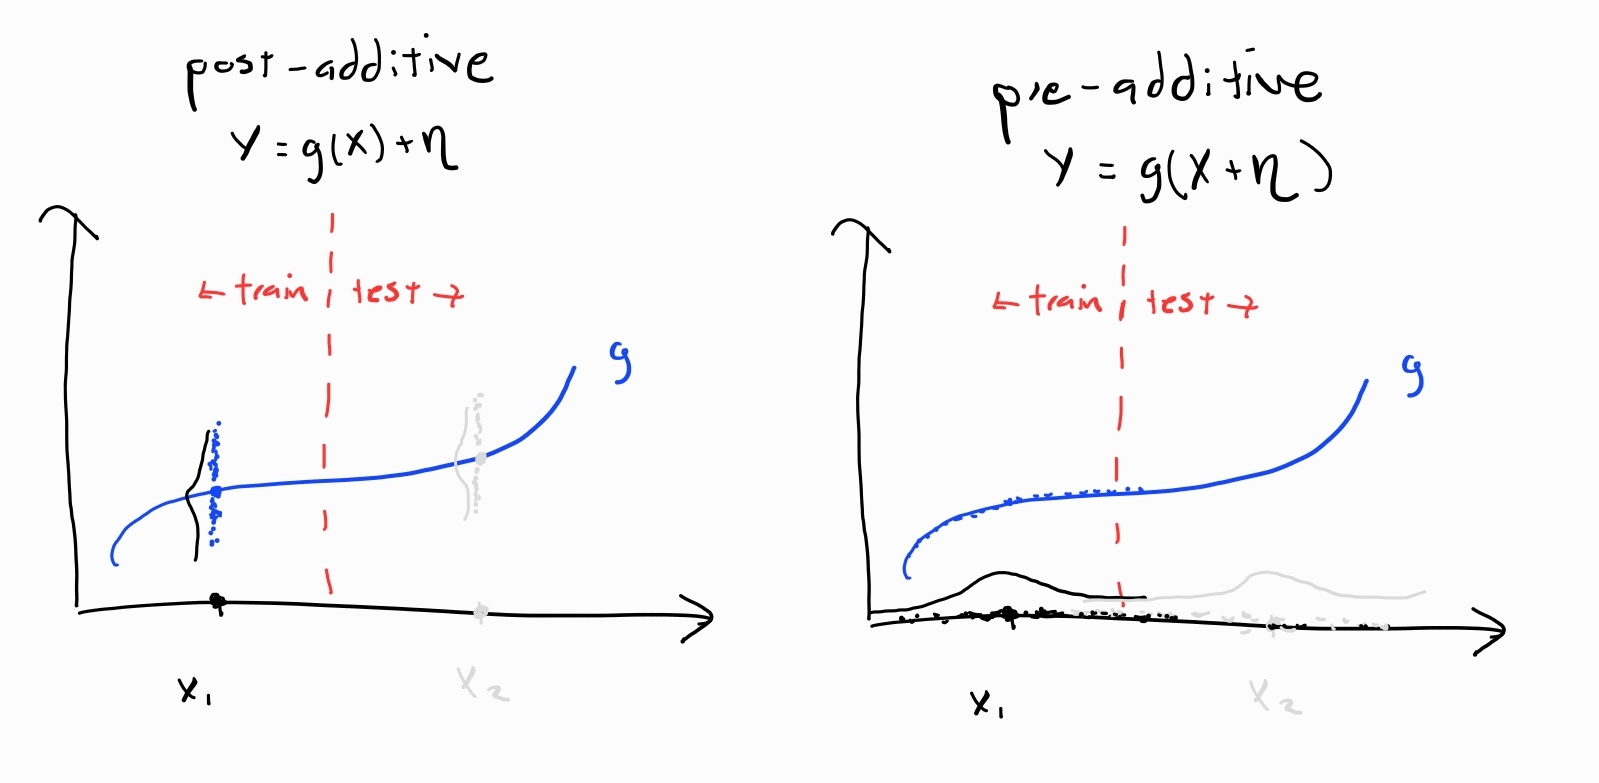 post-additive
Y = g(X) + η
← train
test →
g
x₁
x₂
pre-additive
Y = g(X + η)
← train
test →
g
x₁
x₂